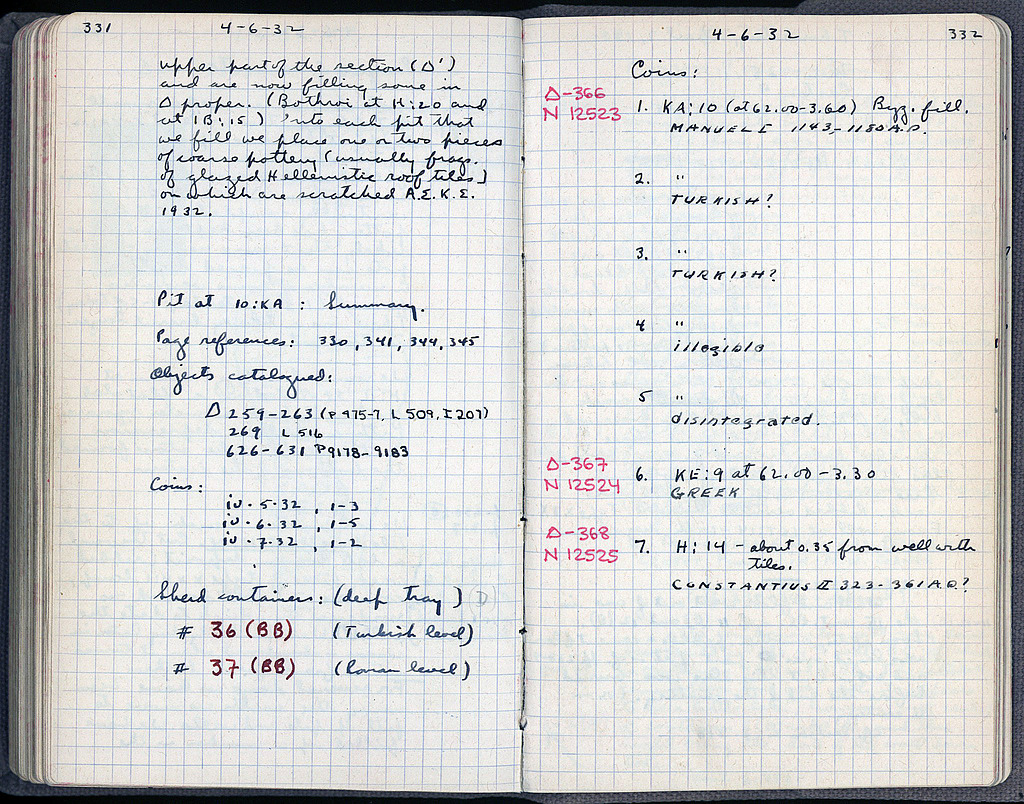 331
4-6-32
upper part of the section (Δ')
and are now filling some in
Δ proper. (Bothroi at H:20 and
at IB:15) Into each pit that
we fill we place one or two pieces
of coarse pottery (usually frags.
of glazed Hellenistic roof tiles)
on which are scratched A.Σ.K.Σ.
1932.
Pit at 10:KA : Summary.
Page references: 330, 341, 344, 345
Objects catalogued:
Δ 259-263 (P 475-7, L 509, I 207)
269 L 516
626-631 P9178-9183
Coins:
iv·5·32, 1-3
iv·6·32, 1-5
iv·7·32, 1-2
Sherd containers: (deep tray) D
# 36 (BB) (Turkish level)
# 37 (BB) (Roman level)
4-6-32
332
Coins:
Δ-366
N 12523
1. KA:10 (at 62.00-3.60) Byz. fill.
MANUEL I 1143-1180 A.D.
2. "
TURKISH?
3. "
TURKISH?
4 "
illegible
5 "
disintegrated.
Δ-367
N 12524
6. KE:9 at 62.00-3.30
GREEK
Δ-368
N 12525
7. H:14 - about 0.35 from well with
tiles.
CONSTANTIUS II 323-361 A.D.?